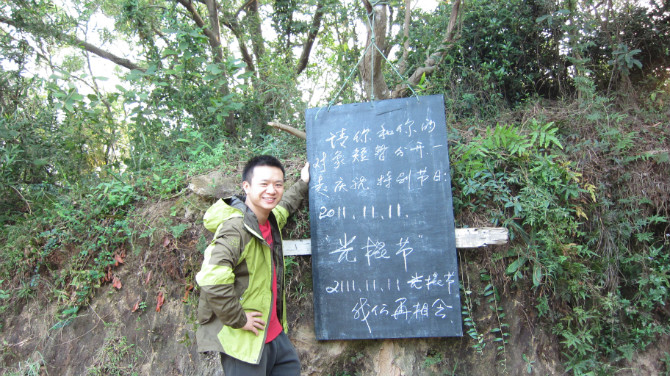 请你和你的
对象短暂分开一
起庆祝特别节日:
2011.11.11.
"光棍节"
2111.11.11 光棍节
我们再相会